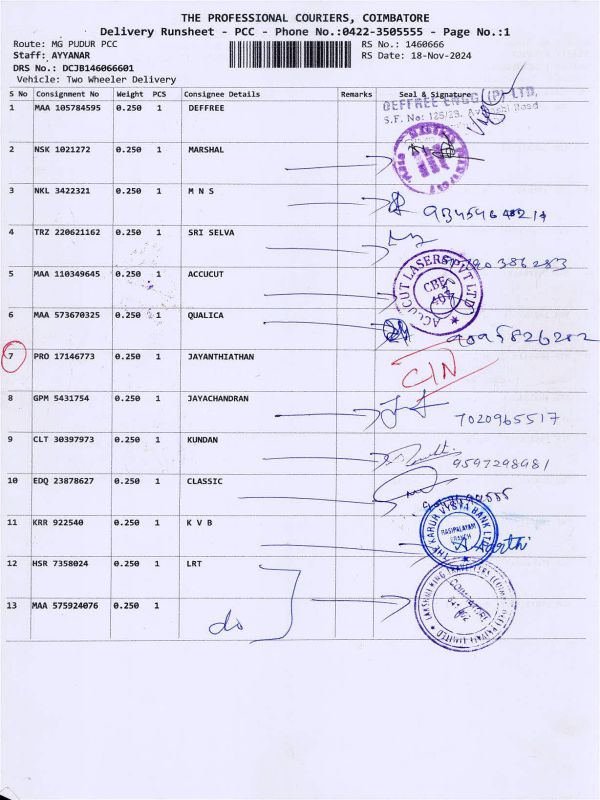 THE PROFESSIONAL COURIERS, COIMBATORE
Delivery Runsheet - PCC - Phone No.:0422-3505555 - Page No.:1
Route: MG PUDUR PCC RS No.: 1460666
Staff: AYYANAR RS Date: 18-Nov-2024
DRS No.: DCJB146066601
Vehicle: Two Wheeler Delivery
S No Consignment No Weight PCS Consignee Details Remarks Seal & Signature
DEFFREE ENGG (P) LTD,
1 MAA 105784595 0.250 1 DEFFREE
S.F. No: 125/23, Road
2 NSK 1021272 0.250 1 MARSHAL
3 NKL 3422321 0.250 1 M N S
4 TRZ 220621162 0.250 1 SRI SELVA
5 MAA 110349645 0.250 1 ACCUCUT
ACCUCUT LASERS PVT LTD
CBE
6 MAA 573670325 0.250 1 QUALICA
9095826202
7 PRO 17146773 0.250 1 JAYANTHIATHAN
CIN
8 GPM 5431754 0.250 1 JAYACHANDRAN
7020965517
9 CLT 30397973 0.250 1 KUNDAN
9597298981
10 EDQ 23878627 0.250 1 CLASSIC
11 KRR 922540 0.250 1 K V B
THE KARUR VYSYA BANK LTD
RASIPALAYAM
BRANCH
12 HSR 7358024 0.250 1 LRT
13 MAA 575924076 0.250 1
do